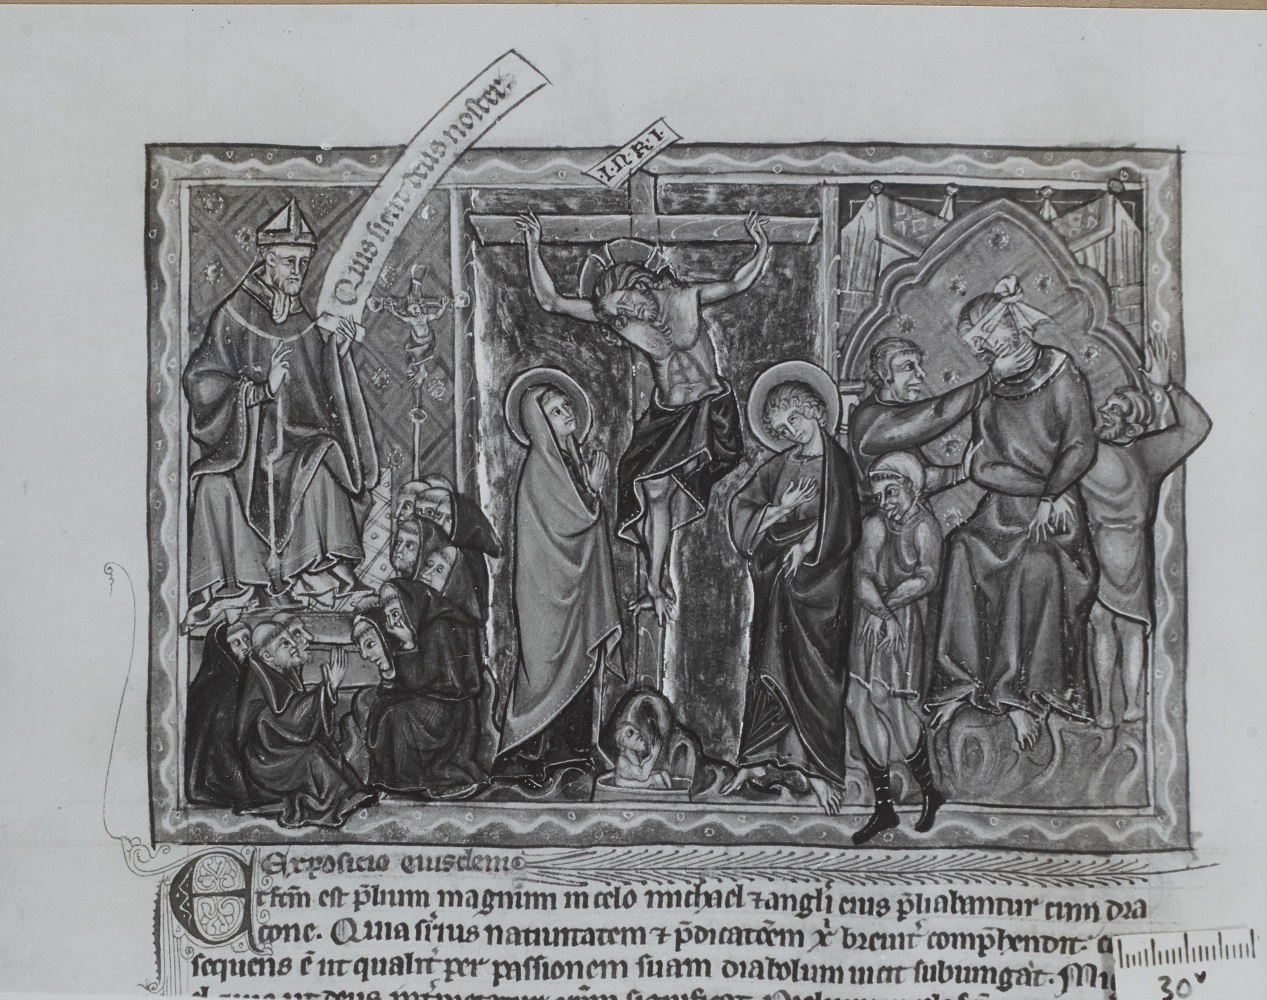 Quis sicut deus noster
.I.N.R.I.
Exposicio eiusdem
Et fc̄m est p̄lium magnum in celo michael ⁊ angli eius p̄liabantur cum dra
cone. Quia sr̄ius natiuitatem ⁊ p̄dicatōem xp̄i breuitr̄ comp̄hendit.
sequens ē ut qualitr̄ per passionem suam diabolum uicit subiungat.
30v